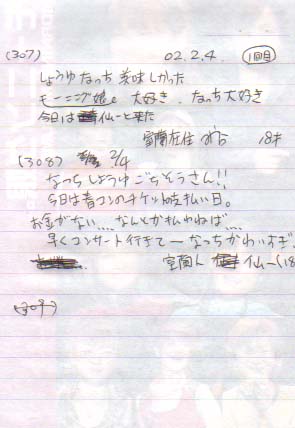 (307) 02.2.4. 1回目
しょうゆなっち美味しかった
モーニング娘。大好き、なっち大好き
今日は仙一と来た
室蘭在住 18才
(308) 2/4
なっちしょうゆごちそうさん!!
今日は春コンのチケット支払い日。
お金がない…、なんとか払わねば…、
早くコンサート行きてーなっちかわいすぎ。
室蘭人 仙一(18
(309)